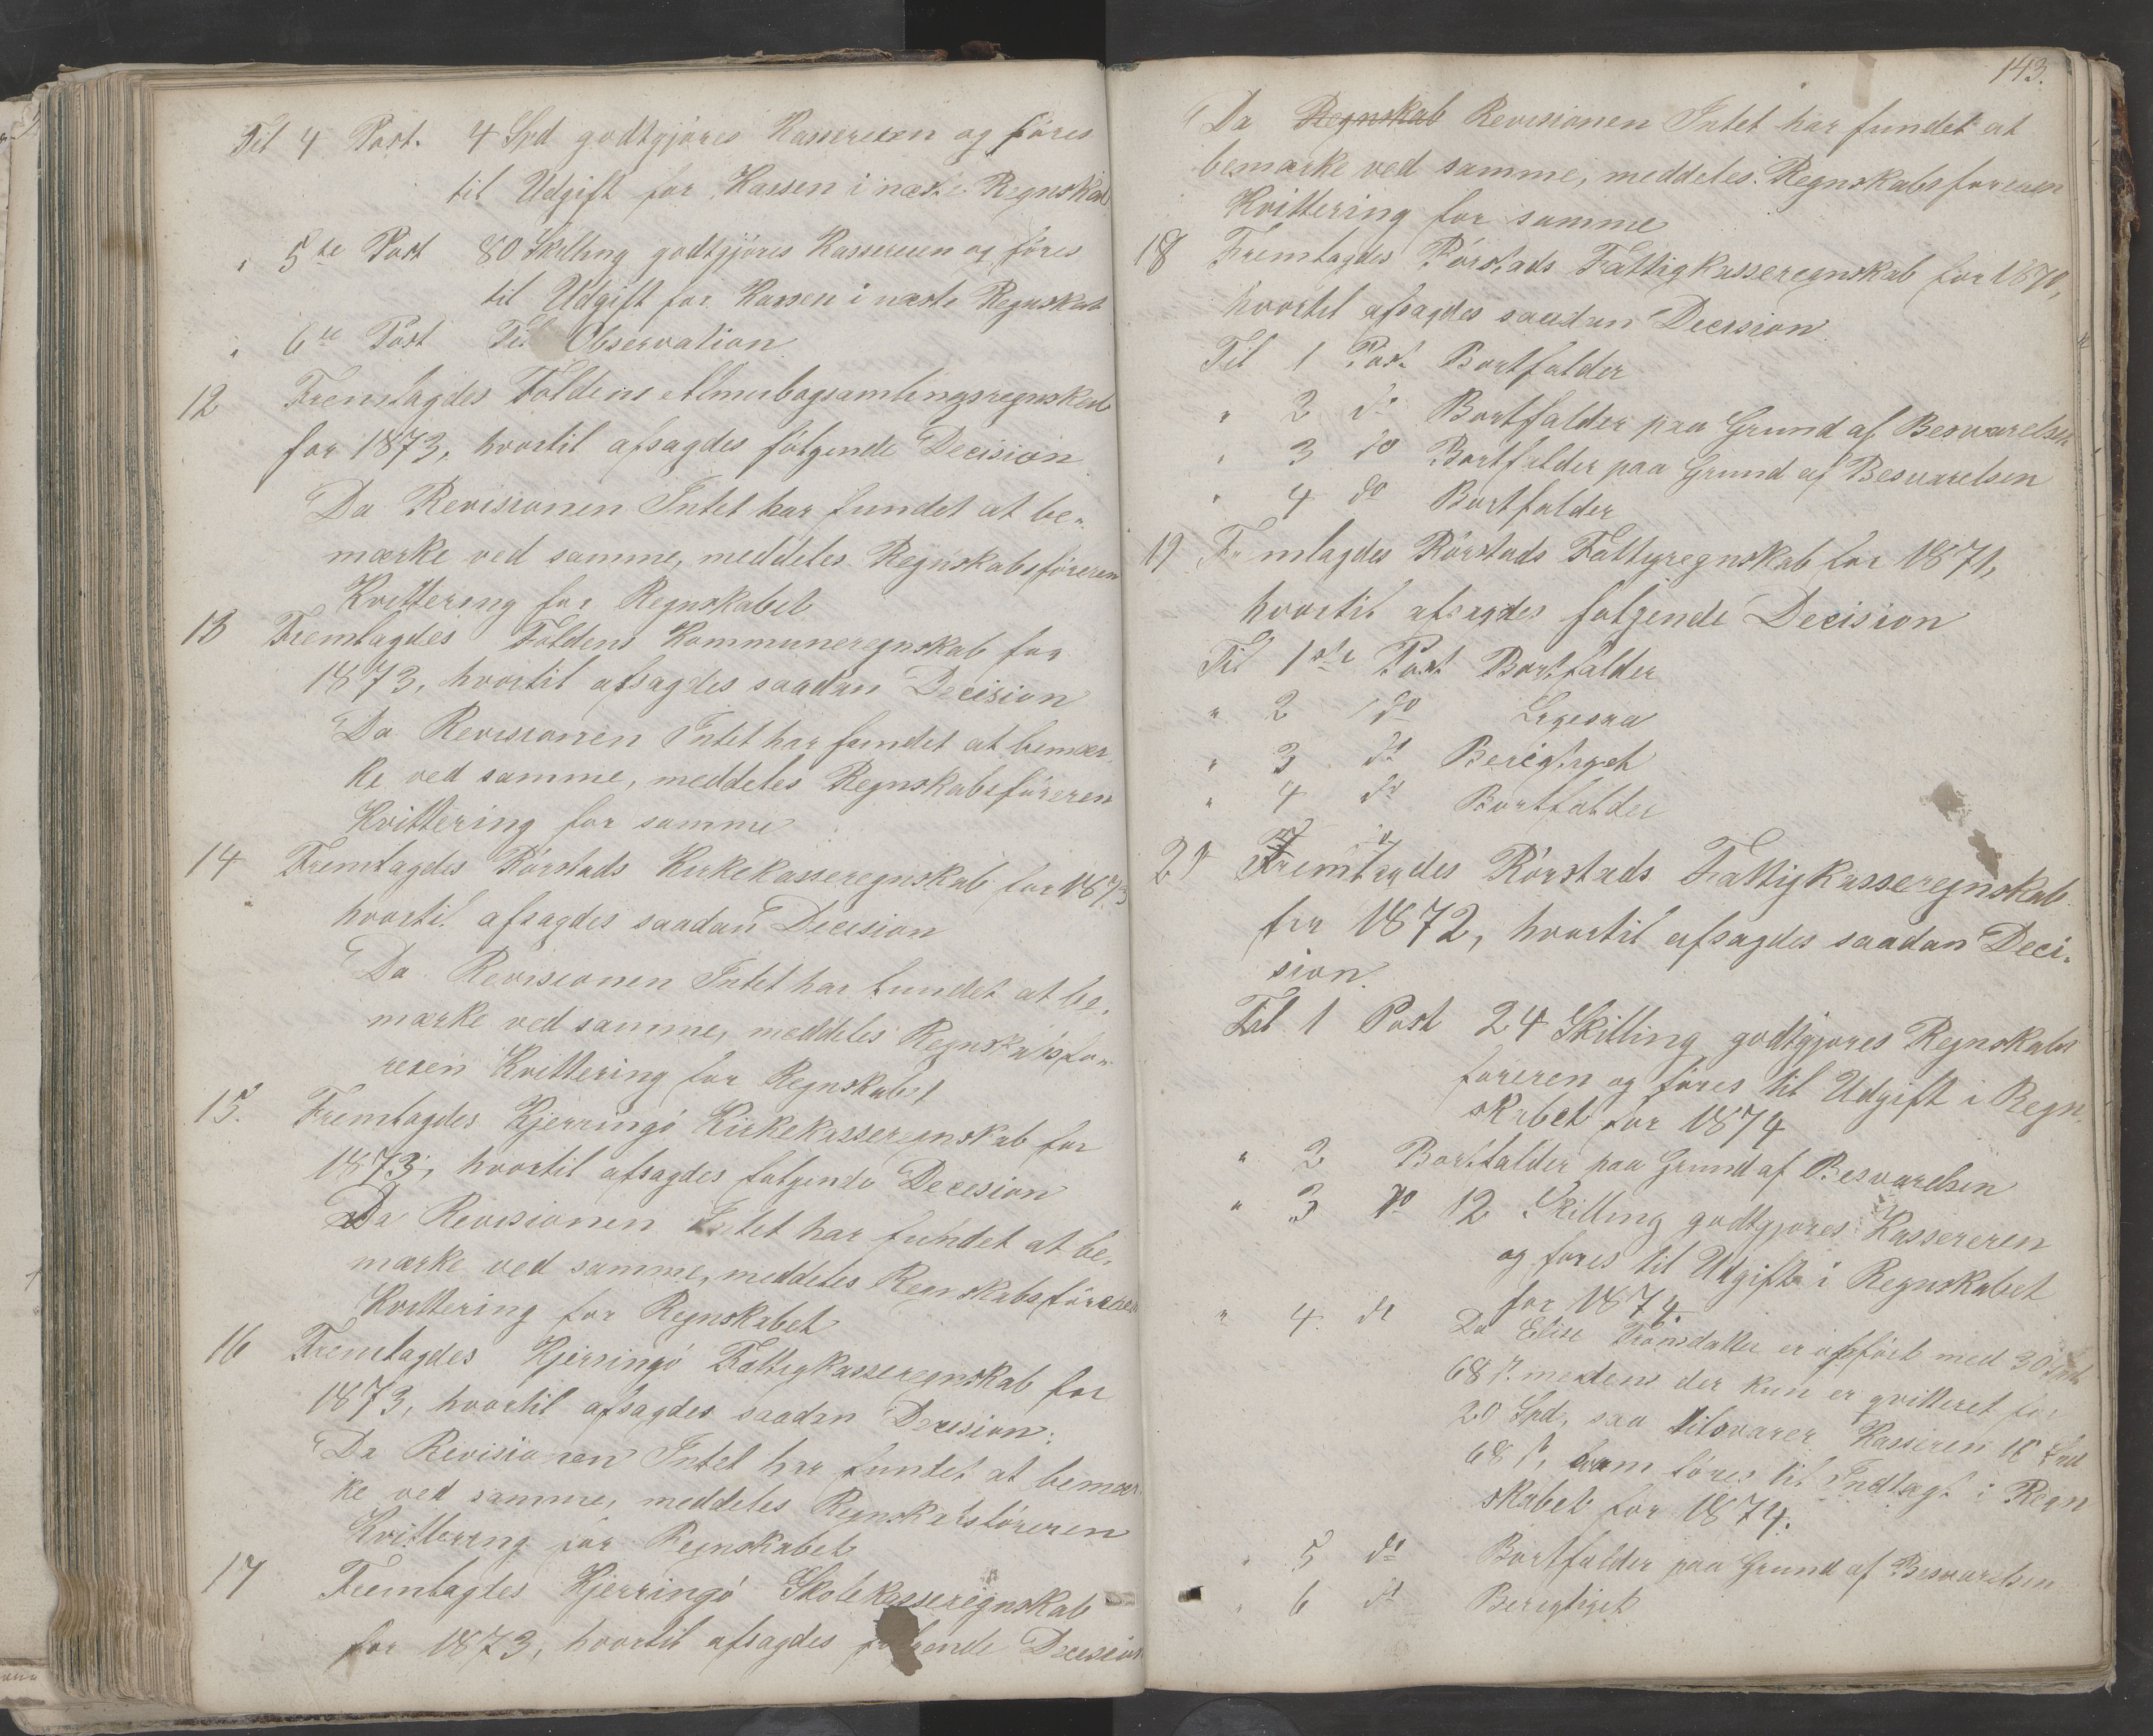 Til 4 Post. 4 Spd godtgjöres Kassereren og föres
til Udgift for Kassen i næste Regnskab
" 5te Post 80 Skilling godtgjöres Kassereren og föres
til Udgift for Kassen i næste Regnskab
" 6te Post Til Observation
12 Fremlagdes Foldens Almubogsamlingsregnskab
for 1873, hvortil afsagdes følgende Decision
Da Revisionen Intet har fundet at be-
mærke ved samme, meddeles Regnskabsföreren
Kvittering for Regnskabet
13 Fremlagdes Foldens Kommuneregnskab for
1873, hvortil afsagdes saadan Decision
Da Revisionen Intet har fundet at bemær-
ke ved samme, meddeles Regnskabsföreren
Kvittering for samme
14 Fremlagdes Rörstads Kirkekasseregnskab for 1873
hvortil afsagdes saadan Decision
Da Revisionen Intet har fundet at be-
mærke ved samme, meddeles Regnskabsfö-
reren Kvittering for Regnskabet
15. Fremlagdes Kjerringö Kirkekasseregnskab for
1873, hvortil afsagdes følgende Decision
Da Revisionen Intet har fundet at be-
mærke ved samme, meddeles Regnskabsföreren
Kvittering for Regnskabet
16 Fremlagdes Kjerringö Fattigkasseregnskab for
1873, hvortil afsagdes saadan Decision:
Da Revisionen Intet har fundet at bemær-
ke ved samme, meddeles Regnskabsföreren
Kvittering for Regnskabet
17 Fremlagdes Kjerringö Skolekasseregnskab
for 1873, hvortil afsagdes følgende Decision
143.
Da Regnskab Revisionen Intet har fundet at
bemærke ved samme, meddeles Regnskabsföreren
Kvittering for samme
18 Fremlagdes Rörstads Fattigkasseregnskab for 1870,
hvortil afsagdes saadan Decision
Til 1 Post Bortfalder
" 2 do Bortfalder paa Grund af Besvarelsen
" 3 do Bortfalder paa Grund af Besvarelsen
" 4 do Bortfalder
19 Fremlagdes Rörstads Fattigregnskab for 1871,
hvortil afsagdes følgende Decision
Til 1ste Post Bortfalder
" 2 do Ligesaa
" 3 do Berigtiget
" 4 do Bortfalder
20 Fremlagdes Rörstads Fattigkasseregnskab
for 1872, hvortil afsagdes saadan Deci-
sion.
Til 1 Post 24 Skilling godtgjöres Regnskabs
föreren og föres til Udgift i Regn-
skabet for 1874
" 2 Bortfalder paa Grund af Besvarelsen
" 3 do 12 Skilling godtgjöres Kassereren
og föres til Udgift i Regnskabet
for 1874.
" 4. do Da Elise er opfört med 30 Spd
68 s. medens der kun er qvitteret for
20 Spd, saa tilsvarer Kasseren 10 Spd
68 s, som föres til Indtægt i Regn
skabet for 1874.
" 5 do Bortfalder paa Grund af Besvarelsen
" 6 do Berigtiget